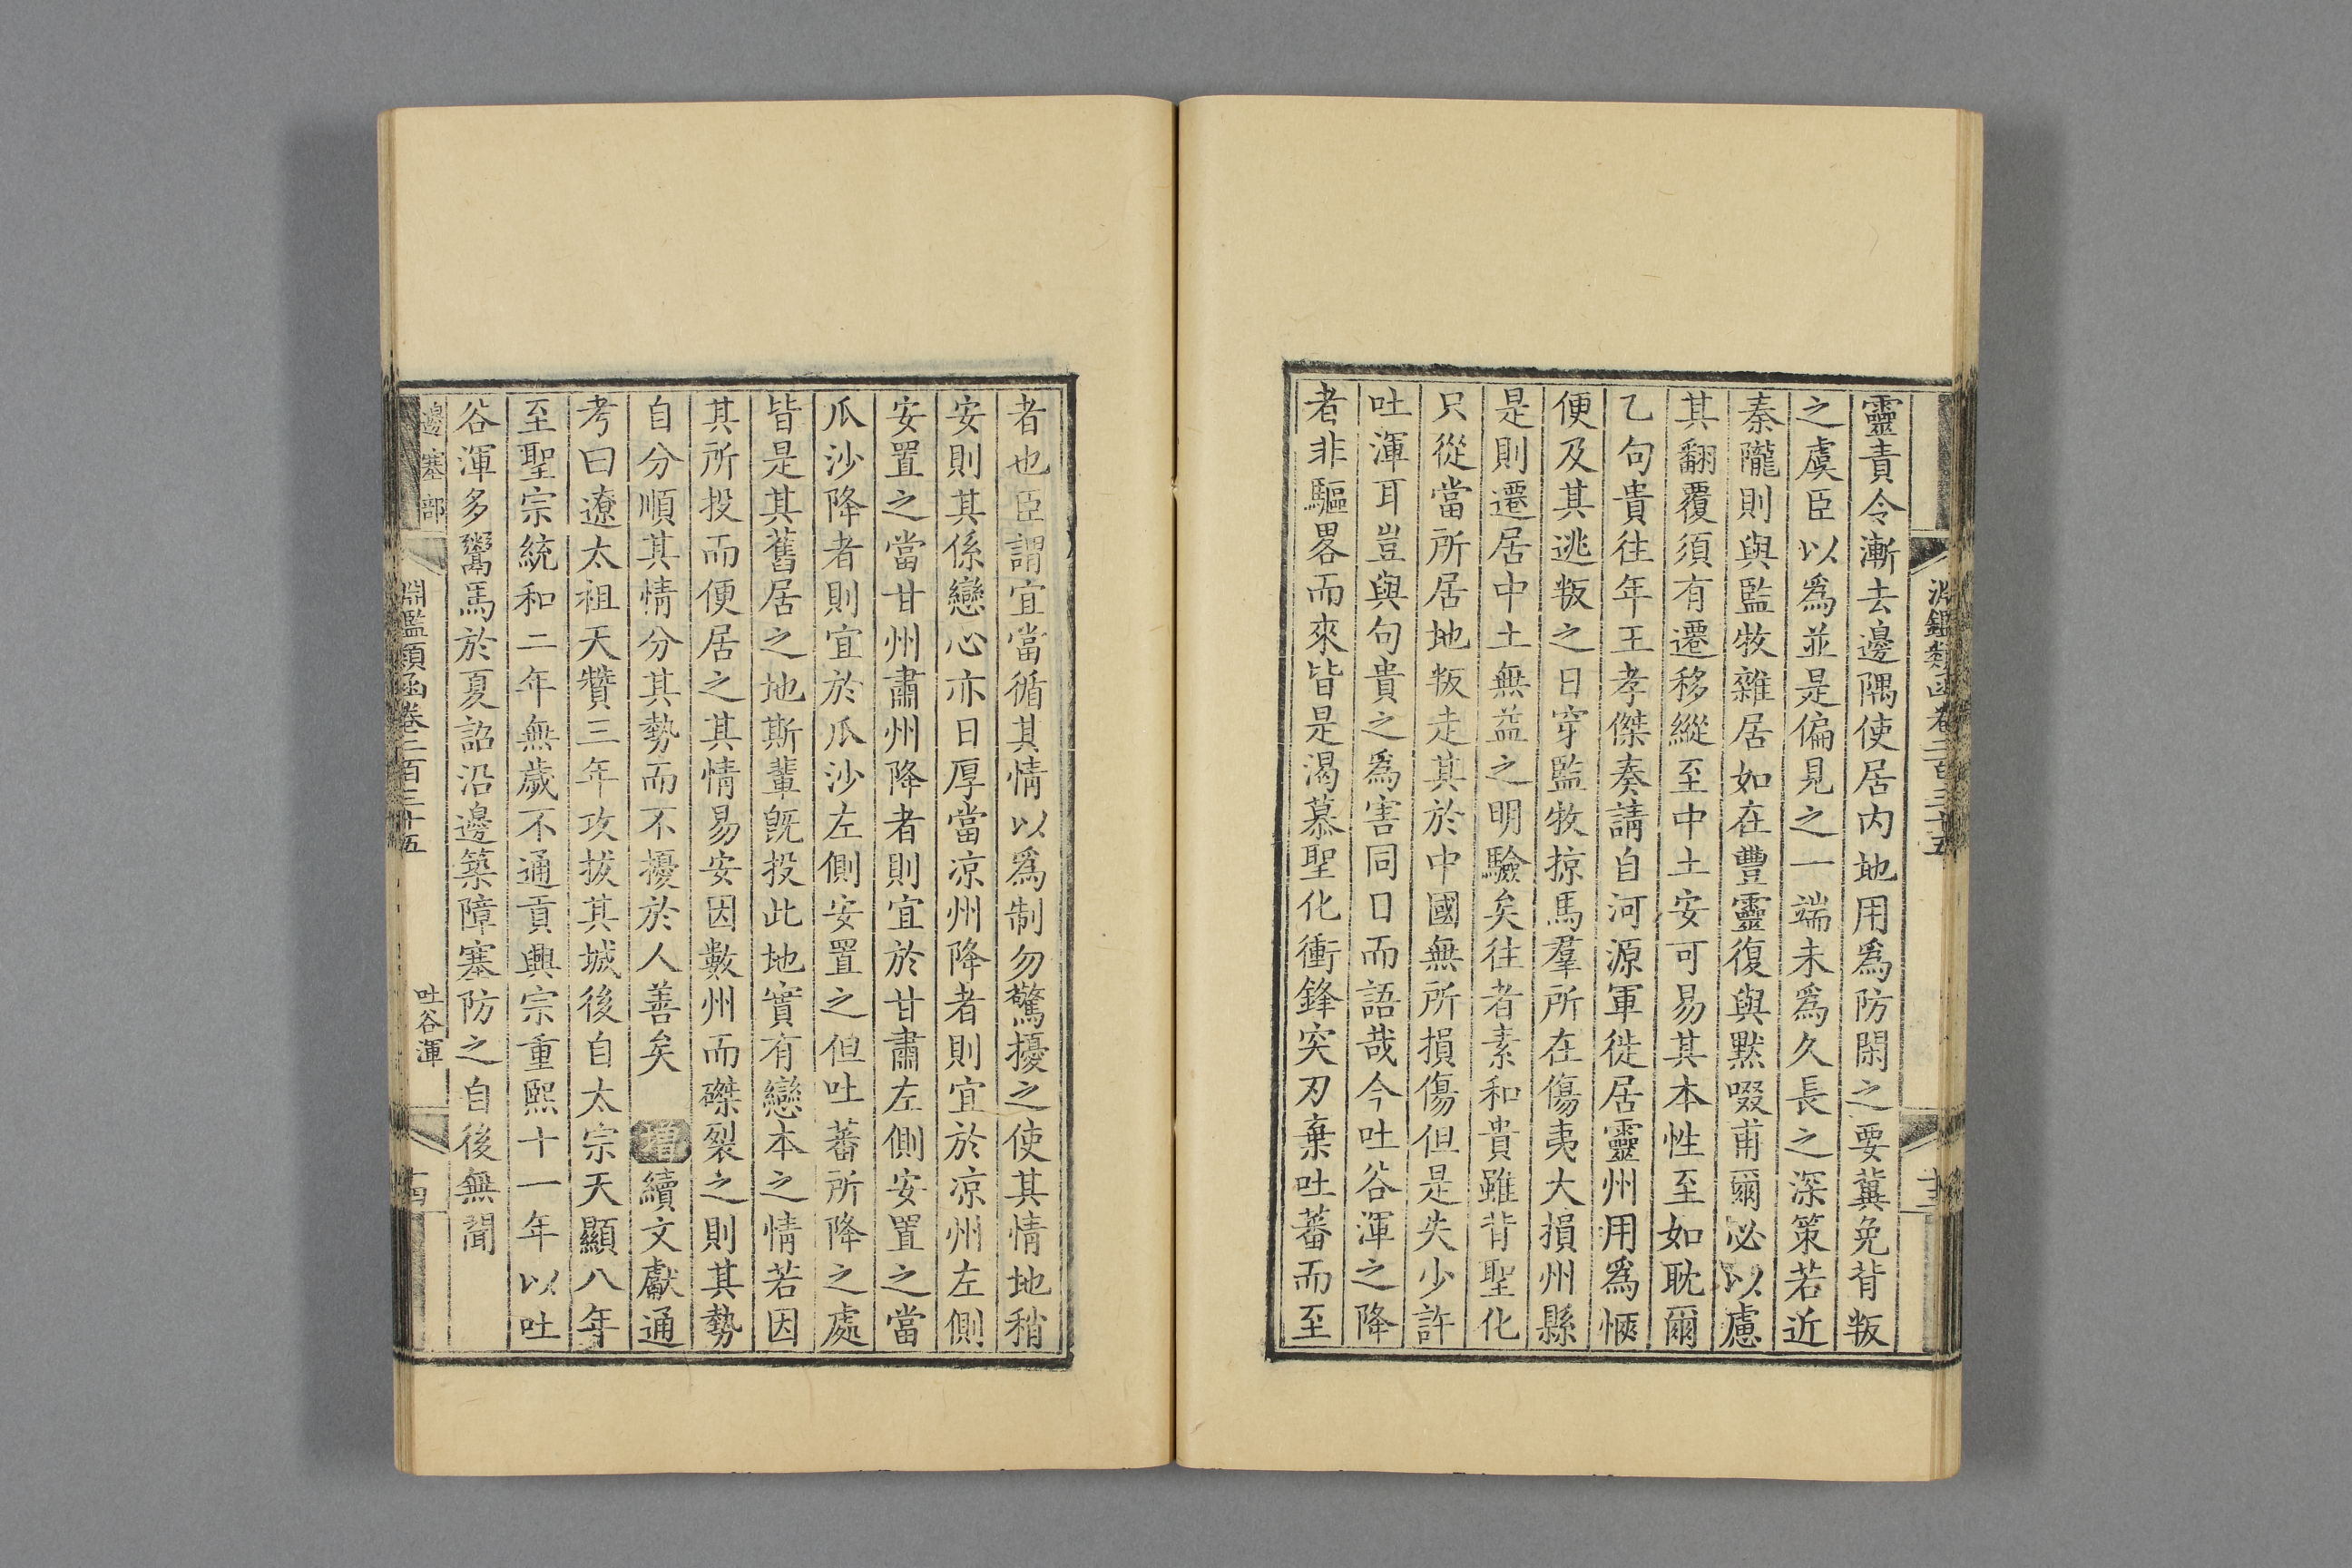 淵鑑類函卷二百三十五
十三
靈責令漸去邊隅使居内地用爲防閑之要冀免背叛
之虞臣以爲並是偏見之一端未爲久長之深策若近
秦隴則與監牧雜居如在豐靈復與默啜甫爾必以慮
其翻覆須有遷移縱至中土安可易其本性至如耽爾
乙句貴往年王孝傑奏請自河源軍徙居靈州用爲愜
便及其逃叛之日穿監牧掠馬羣所在傷夷大損州縣
是則遷居中土無益之明驗矣往者素和貴雖背聖化
只從當所居地叛走其於中國無所損傷但是失少許
吐渾耳豈與句貴之爲害同日而語哉今吐谷渾之降
者非驅畧而來皆是渴慕聖化衝鋒突刃棄吐蕃而至
者也臣謂宜當循其情以爲制勿驚擾之使其情地稍
安則其係戀心亦日厚當凉州降者則宜於凉州左側
安置之當甘州肅州降者則宜於甘肅左側安置之當
瓜沙降者則宜於瓜沙左側安置之但吐蕃所降之處
皆是其舊居之地斯輩旣投此地實有戀本之情若因
其所投而便居之其情易安因數州而磔裂之則其勢
自分順其情分其勢而不擾於人善矣 增續文獻通
考曰遼太祖天贊三年攻拔其城後自太宗天顯八年
至聖宗統和二年無歲不通貢興宗重熙十一年以吐
谷渾多鬻馬於夏詔沿邊築障塞防之自後無聞
邊塞部
淵鑑類函卷二百三十五
吐谷渾
十四